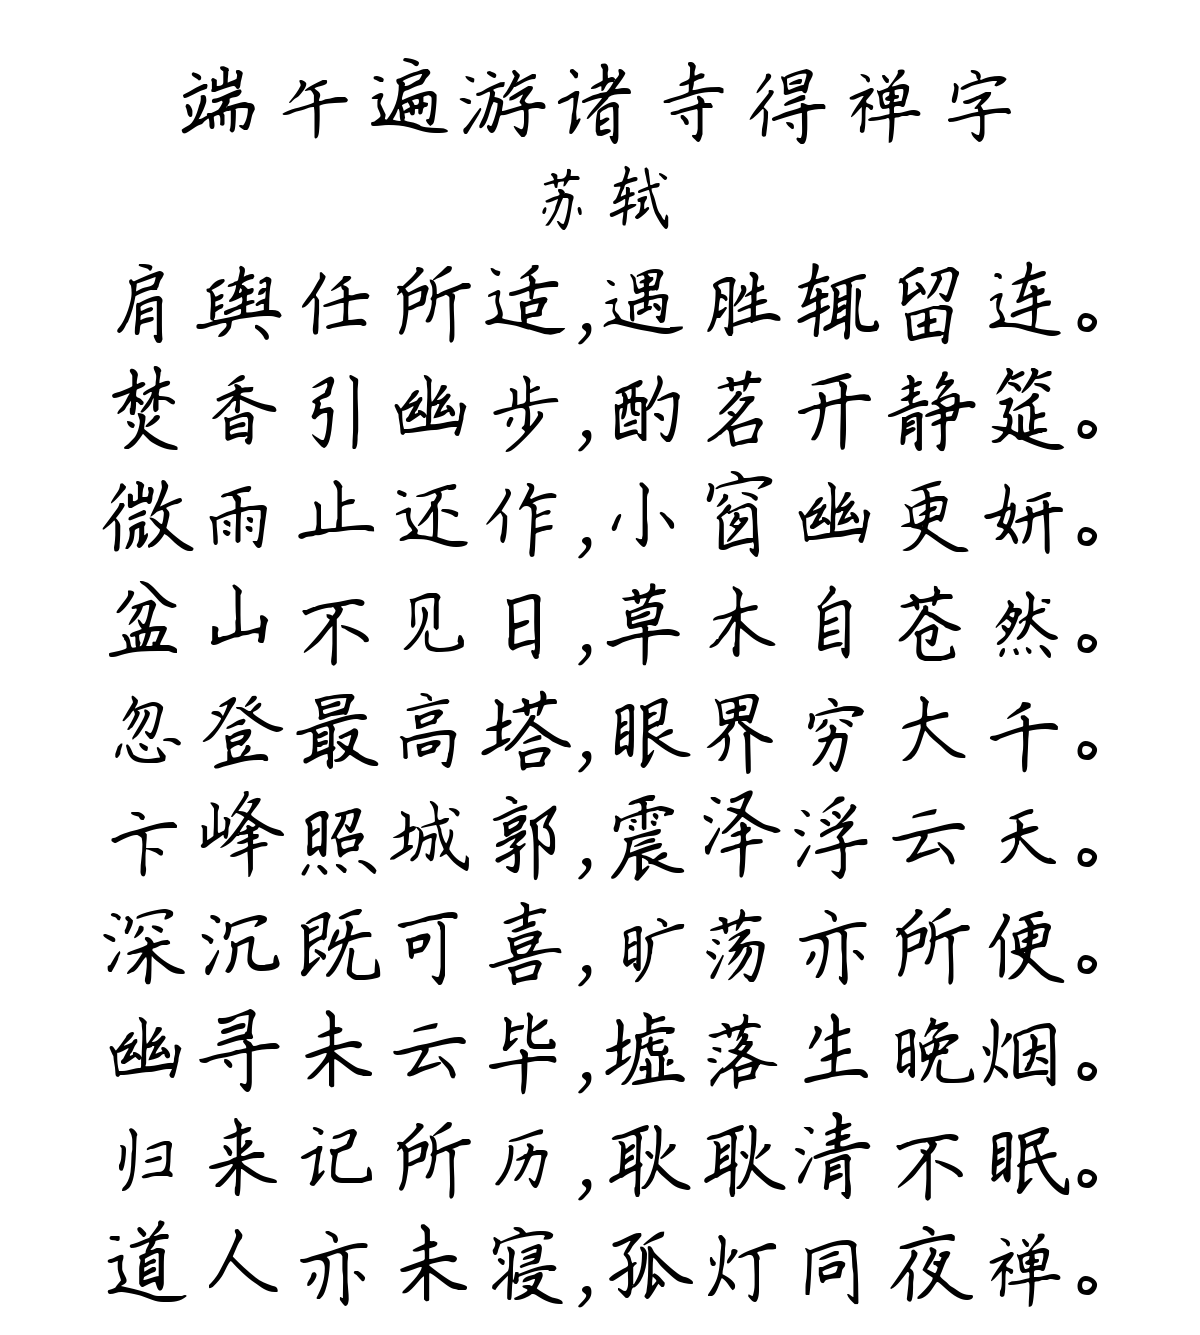 端午遍游诸寺得禅字
苏轼
肩舆任所适,遇胜辄留连。
焚香引幽步,酌茗开静筵。
微雨止还作,小窗幽更妍。
盆山不见日,草木自苍然。
忽登最高塔,眼界穷大千。
卞峰照城郭,震泽浮云天。
深沉既可喜,旷荡亦所便。
幽寻未云毕,墟落生晚烟。
归来记所历,耿耿清不眠。
道人亦未寝,孤灯同夜禅。